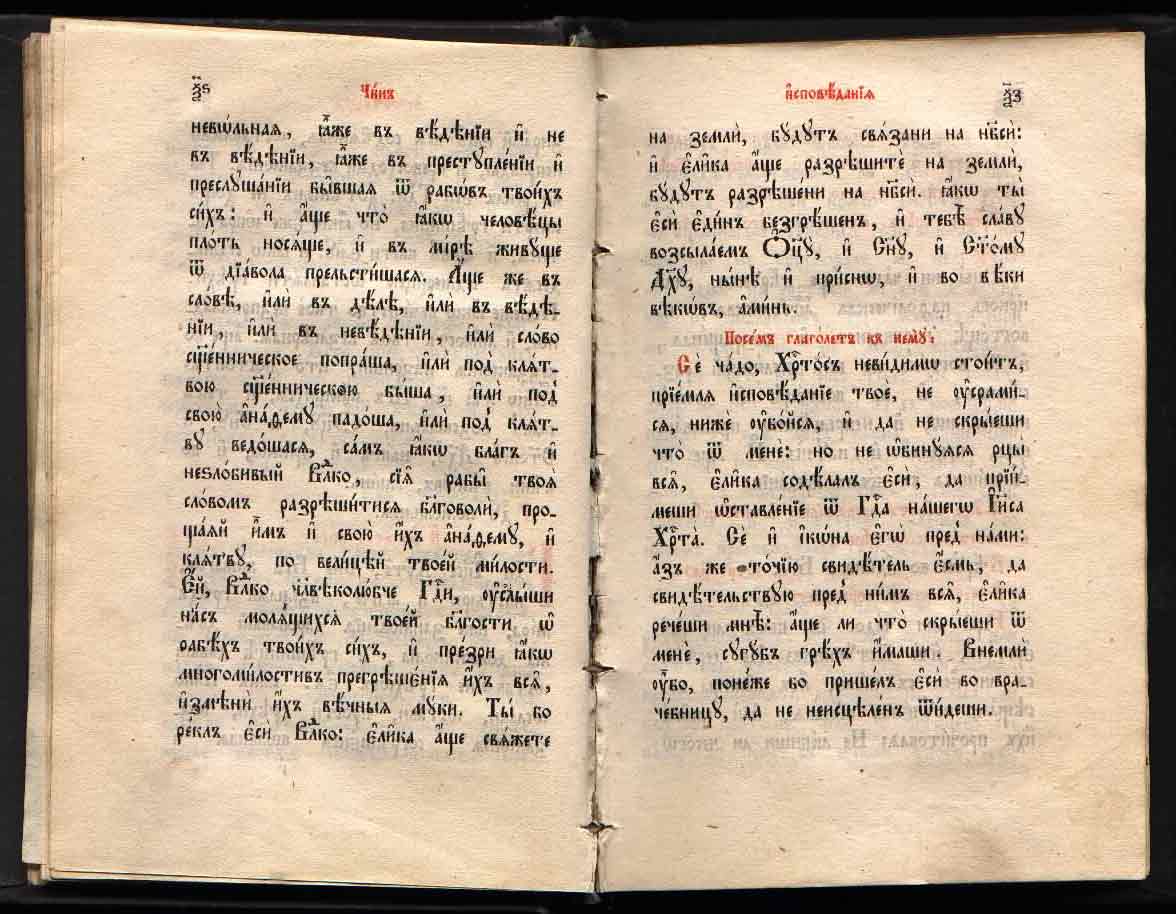 ѯ҃ѕ
Чи́нъ
нево́льная, ꙗ҆́же въ вѣ́дѣнїи и҆ не
въ вѣ́дѣнїи, ꙗ҆́же въ преступле́нїи и҆
преслꙋша́нїи бы́вшая ѿ рабѡ́въ твои́хъ
си́хъ: и҆ а҆́ще что̀ ꙗ҆́кѡ человѣ́цы
пло́ть нося́ще, и҆ въ мі́рѣ живꙋ́ще
ѿ дїа́вола прельсти́шася. А҆́ще же въ
сло́вѣ, и҆лѝ въ дѣ́лѣ, и҆лѝ въ вѣ́дѣ-
нїи, и҆лѝ въ невѣ́дѣнїи, и҆лѝ сло́во
сщ҃е́нническое попра́ша, и҆лѝ под̾ кля́т-
вою сщ҃е́нническою бы́ша, и҆лѝ под̾
свою̀ а҆на́ѳемꙋ падо́ша, и҆лѝ под̾ кля́т-
вꙋ ведо́шася, са́мъ ꙗ҆́кѡ бл҃гъ и҆
неѕло́бивый влⷣко, сїѧ̑ рабы̑ твоя̑
сло́вомъ разрѣши́тися бл҃говолѝ, про-
ща́яй и҆̀мъ и҆ свою̀ и҆́хъ а҆на́ѳемꙋ, и҆
кля́твꙋ, по вели́цѣй твое́й ми́лости.
Е҆́й, влⷣко чл҃вѣколю́бче гдⷭ҇и, ᲂу҆слы́ши
на́съ моля́щихся твое́й бл҃гости ѡ҆
рабѣ́хъ твои́хъ си́хъ, и҆ пре́зри ꙗ҆́кѡ
многоми́лостивъ прегрѣше́нїя и҆́хъ вся̑,
и҆змѣнѝ и҆́хъ вѣ́чныя мꙋ́ки. Ты́ бо
ре́клъ є҆сѝ влⷣко: є҆ли́ка а҆́ще свя́жете
и҆сповѣ́данїя
ѯ҃з
на землѝ, бꙋ́дꙋтъ свя́зани на нб҃сѝ:
и҆ є҆ли́ка а҆́ще разрѣши́те на землѝ,
бꙋ́дꙋтъ разрѣше́ни на нб҃сѝ. ꙗ҆́кѡ ты̀
є҆сѝ є҆ди́нъ безгрѣ́шенъ, и҆ тебѣ̀ сла́вꙋ
возсыла́емъ Ѻ҆ц҃ꙋ̀, и҆ Сн҃ꙋ, и҆ Ст҃о́мꙋ
Дх҃ꙋ, ны́нѣ и҆ при́снѡ, и҆ во вѣ́ки
вѣкѡ́въ, а҆ми́нь.
Посе́мъ глаго́летъ къ немꙋ̀:
Сѐ ча́до, Хрⷭ҇то́съ неви́димѡ стои́тъ,
прїе́мля и҆сповѣ́данїе твоѐ, не ᲂу҆срами́-
ся, нижѐ ᲂу҆бо́йся, и҆ да не скры́еши
что̀ ѿ менѐ: но не ѡ҆бинꙋ́яся рцы̀
вся̑, є҆ли́ка содѣ́лалъ є҆сѝ, да прїи́-
меши ѡ҆ставле́нїе ѿ Гдⷭ҇а на́шегѡ І҆и҃са
Хрⷭ҇та̀. Сѐ и҆ і҆кѡ́на є҆гѡ̀ пред̾ на́ми:
а҆́зъ же то́чїю свидѣ́тель є҆́смь, да
свидѣ́тельствꙋю пред̾ ни́мъ вся̑, є҆ли́ка
рече́ши мнѣ̀: а҆́ще ли что̀ скры́еши ѿ
менѐ, сꙋгꙋ́бъ грѣ́хъ и҆́маши. Внемлѝ
ᲂу҆̀бо, поне́же бо прише́лъ є҆сѝ во вра-
че́бницꙋ, да не неисцѣ́ленъ ѿи́деши.